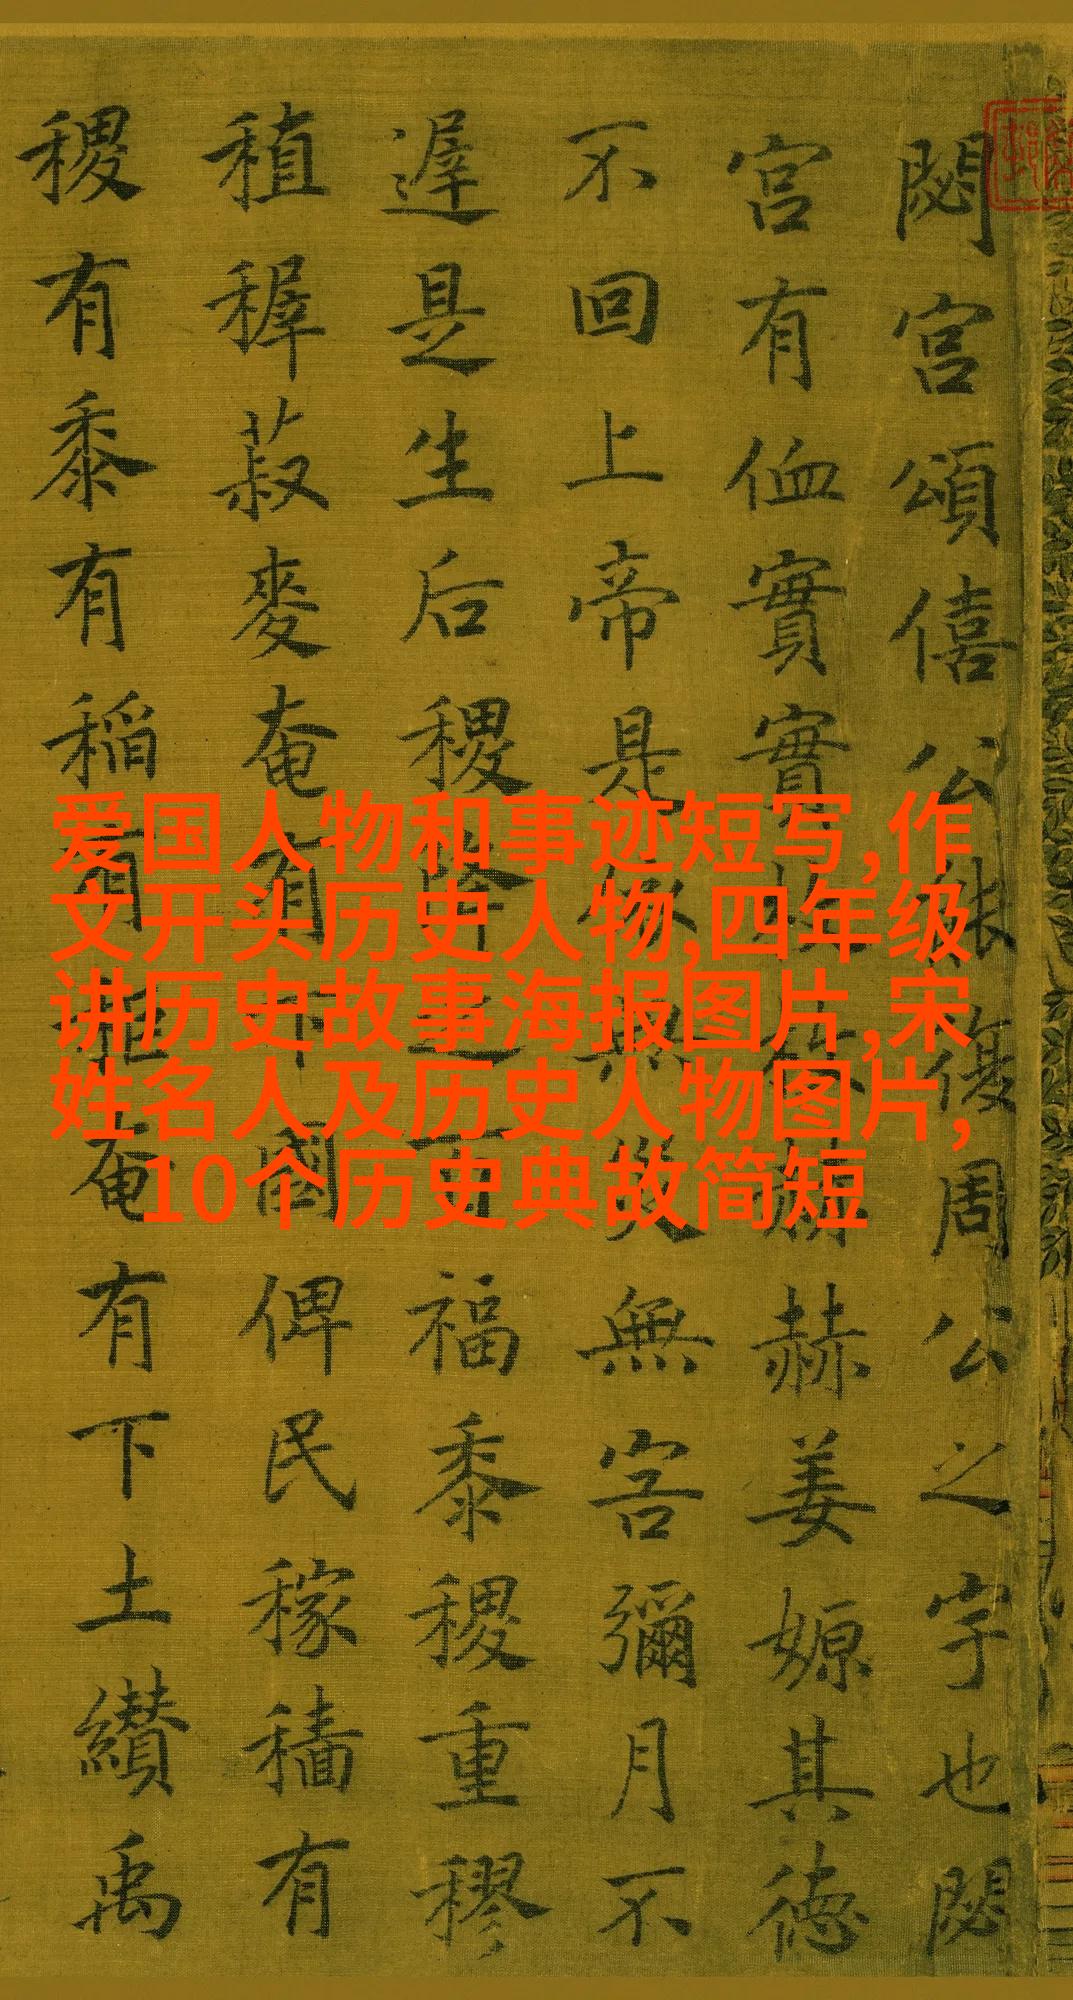 閟宫頌僖公能復周公之宇也閟
宫有侐實實枚枚赫赫姜嫄其德
不回上帝是依無災無害彌月不
遲是生后稷降之百福黍稷重穋
稙稺菽麥奄有下國俾民稼穡有
稷有黍有稻有秬奄有下土纘禹
爱国人物和事迹短写,作
文开头历史人物,四年级
讲历史故事海报图片,宋
姓名人及历史人物图片,
10个历史典故简短